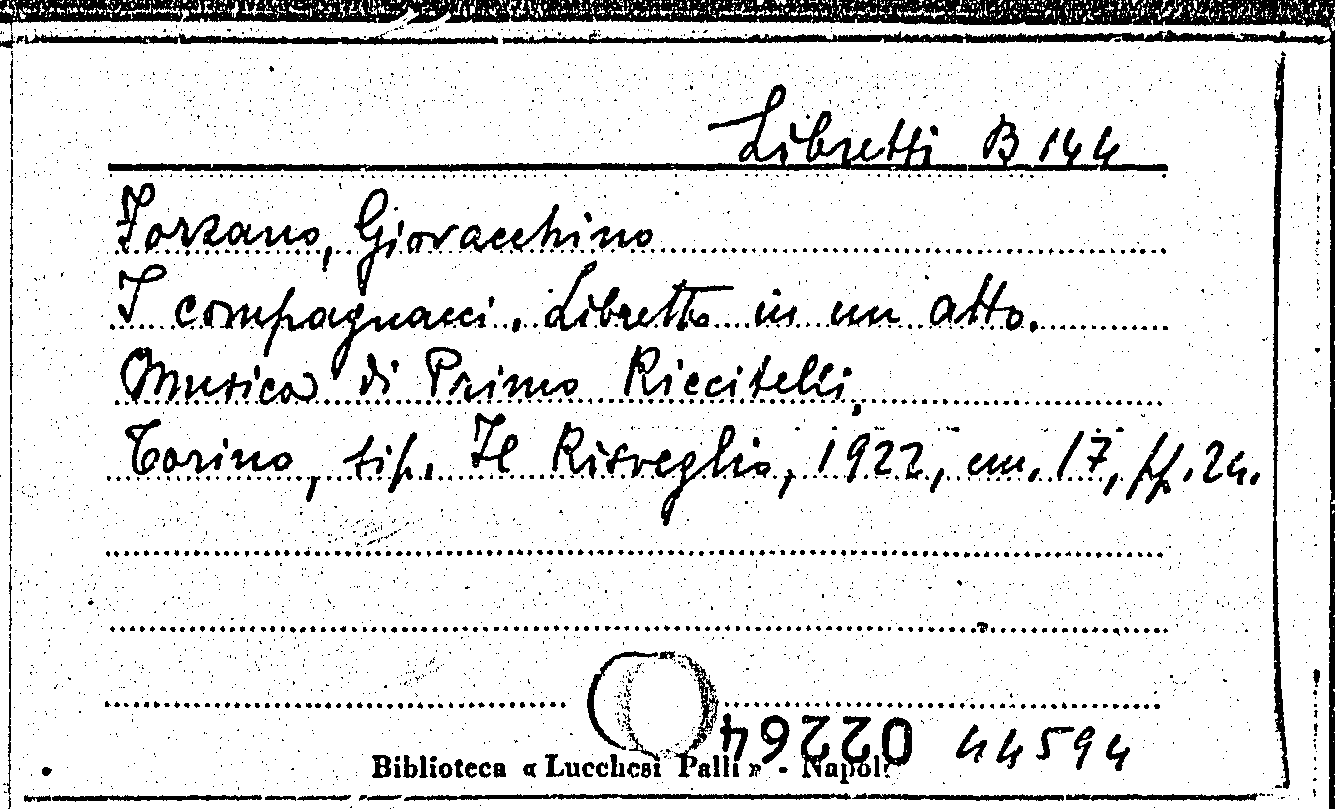 Libretti B 144
Forzano, Giovacchino
I compagnacci. Libretto in un atto.
Musica di Primo Riccitelli.
Torino, tip. Il Risveglio, 1922, cm. 17, pp. 24.
02264 44594
Biblioteca « Lucchesi Palli » - Napoli